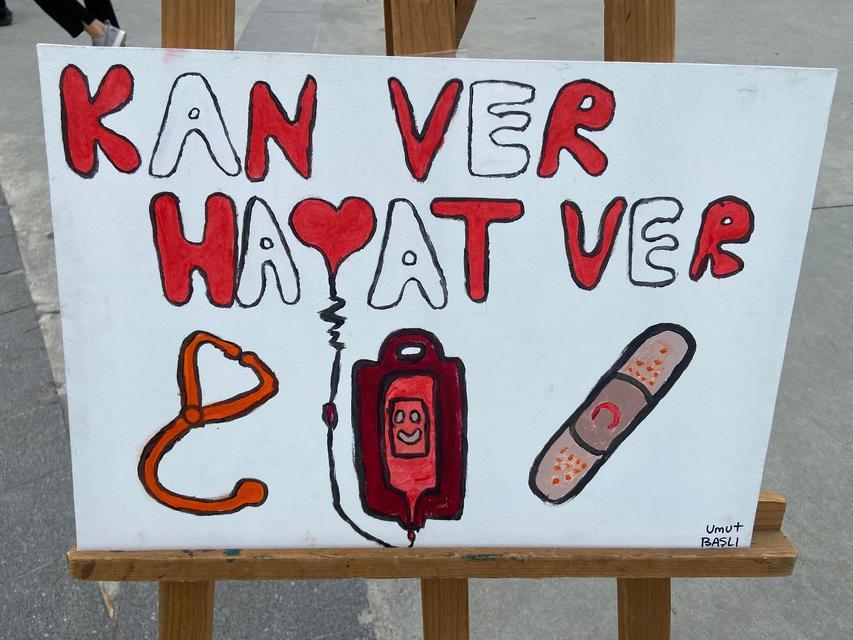 KAN VER
HAYAT VER
Umut
BAŞLI